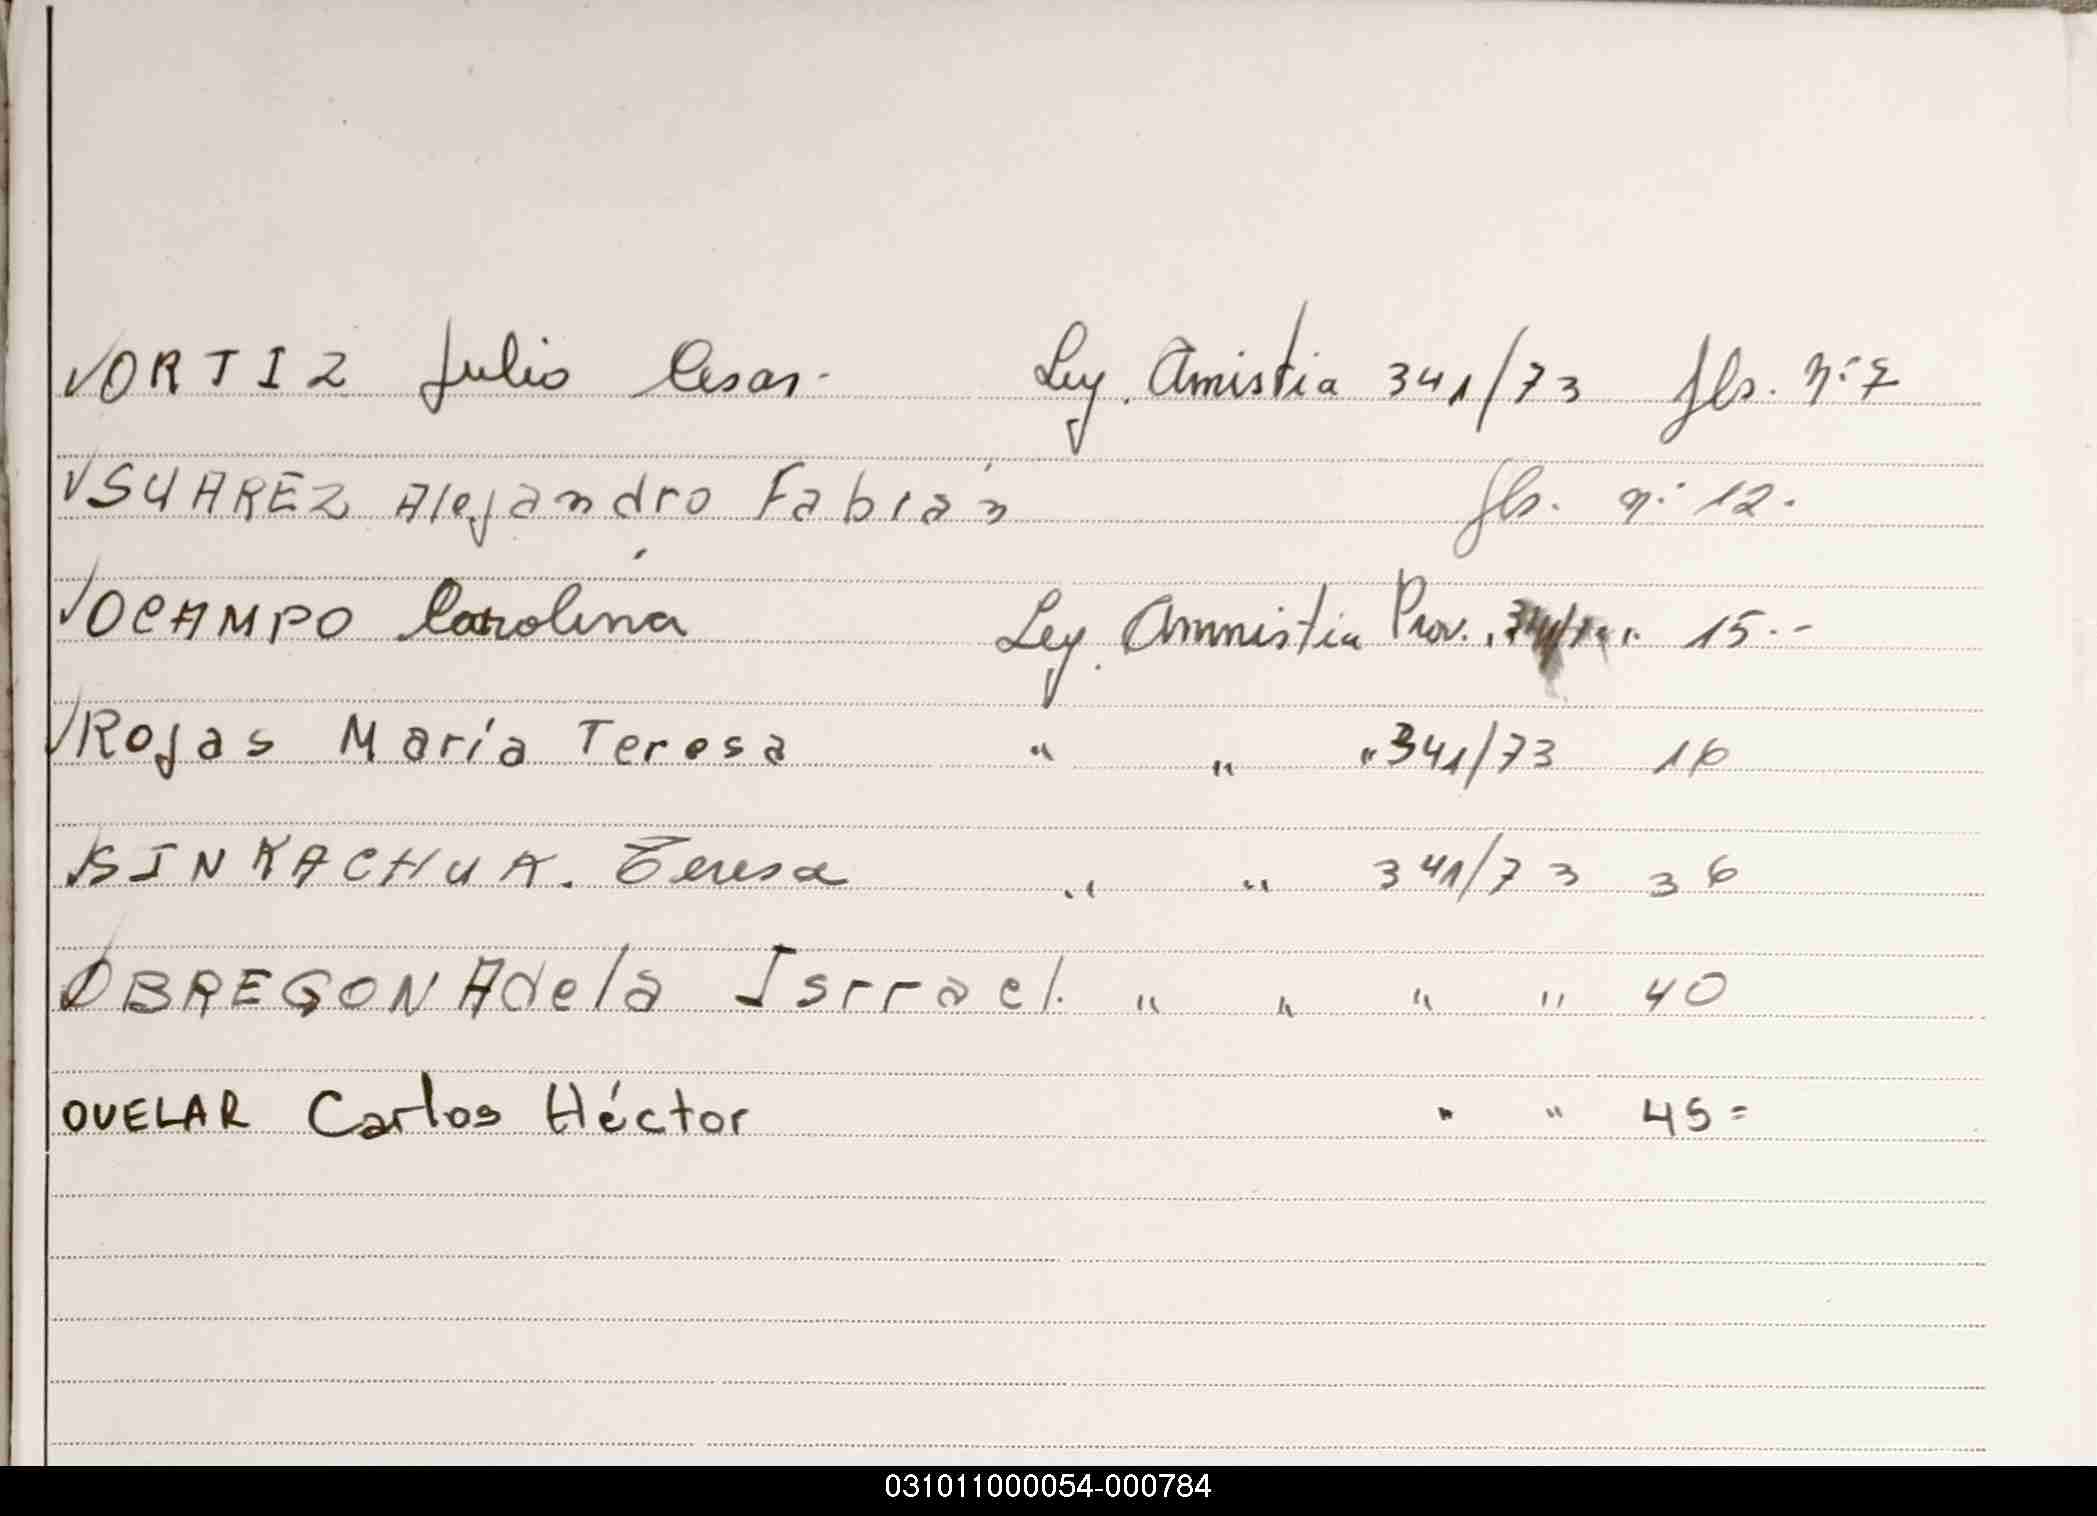 ORTIZ Julio Cesar. Ley. Amistia 341/73 fls. nº 7
SUAREZ Alejandro Fabián fls. nº 12.
OCAMPO Carolina Ley. Amnistia Prov. 15.-
ROJAS María Teresa " " " 341/73 16
SINKACHUK. Teresa " " 341/73 36
OBREGON Adela Isrrael. " " " " 40
OVELAR Carlos Héctor " " 45=
031011000054-000784